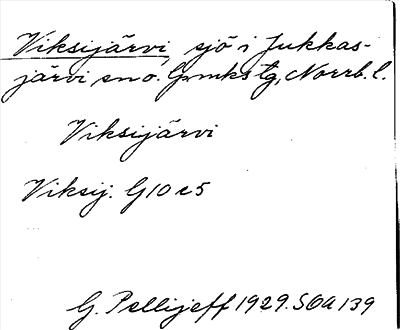 Viksijärvi, sjö i Jukkas-
järvi sn o. Gmks tg, Norrb. l.
Viksijärvi
Viksij. G10c5
G. Pellijeff 1929. SOA 139